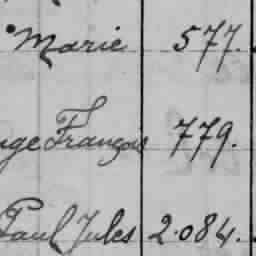 Marie 577.
François 779.
Paul Jules 2.084.